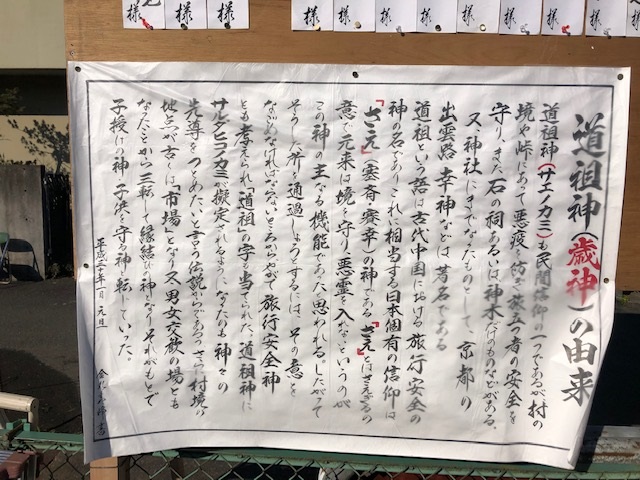 様 様 様 様 様 様 様 様 様 様
道祖神(歳神)の由来
道祖神(サエノカミ)も民間信仰の一つであるが、村の
境や峠にあって悪疫を防ぎ旅立つ者の安全を
守り、また石の祠あるいは神木だけのものなどがある。
又、神社にまでなったものとして、京都の
出雲路 幸神などは著名である
道祖という語は古代中国における旅行安全の
神の名であり、これに相当する日本個有の信仰は
「さえ」(塞斎・塞幸)の神である「さえ」とはさえぎるの
意で元来は境を守り、悪霊を入れないというのが
この神の主なる機能であった、思われる。したがって
そうした所を通過しようとするには、その意を
なぐめなければならないところからやがて旅行安全神
とも考えられ、「道祖」の字が当てられた、道祖神に
サルタヒコノカミが擬定されるようになったのも神々の
先導をつとめたいと言う伝説からであるさらに村境の
地点が古くは「市場」となり又、男女交歓の場とも
なったことから三転して縁結びの神となり、それがもとで
子授けの神、子供を守る神へ転じていった。
平成二十年一月一元旦